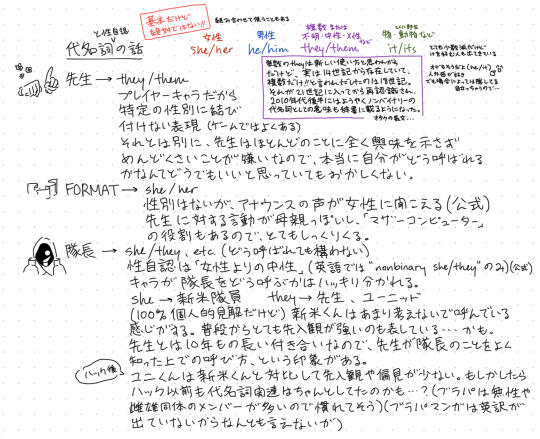 と性自認
代名詞の話
基本だけど
絶対ではない!!
組み合わせて使うこともある
女性
she/her
男性
he/him
複数 または
不明・中性・X性 など
they/them
じんがい
物・動物など
it/its
とても少数派だけど
itを好む人も出てきている
単数のtheyは新しい使い方と思われがち
だけど、実は14世紀から存在していて、
複数だけ!!と言われだしたのは18世紀。
それが21世紀に入ってから再認識され、
2010年代後半にはようやくノンバイナリーの
代名詞としての意味も辞書に載るようになった。
オタクの長文…
先生 → they/them
プレイヤーキャラだから
特定の性別に結び
付けない表現 (ゲームではよくある)
それとは別に、先生はほとんどのことに全く興味を示さず
めんどくさいことが嫌いなので、本当に自分がどう呼ばれる
かなんてどうでもいいと思っていてもおかしくない。
FORMAT → she/her
性別はないが、アナウンスの声が女性に聞こえる(公式)
先生に対する言動が母親っぽいし、「マザーコンピューター」
の役割もあるので、とてもしっくりくる。
隊長 → she/they, etc. (どう呼ばれても構わない)
性自認は「女性よりの中性」(英語では"nonbinary she/they"のみ)(公式)
キャラが隊長をどう呼ぶかはハッキリ分かれる。
she → 新米隊員 they → 先生、ユニッド
(100%個人的見解だけど) 新米くんはあまり考えないで呼んでいる
感じがする。普段からとても先入観が強いのも表している…かも。
先生とは10年もの長い付き合いなので、先生が隊長のことをよく
知った上での呼び方、という印象がある。
ハック後
ユニくんは新米くんと対比して先入観や偏見が少ない。もしかしたら
ハック以前も代名詞関連はちゃんとしてたのかも…? (ブラパは無性や
雌雄同体のメンバーが多いので慣れてそう)(ブラパマンガは英訳が
出ていないからなんとも言えないが)